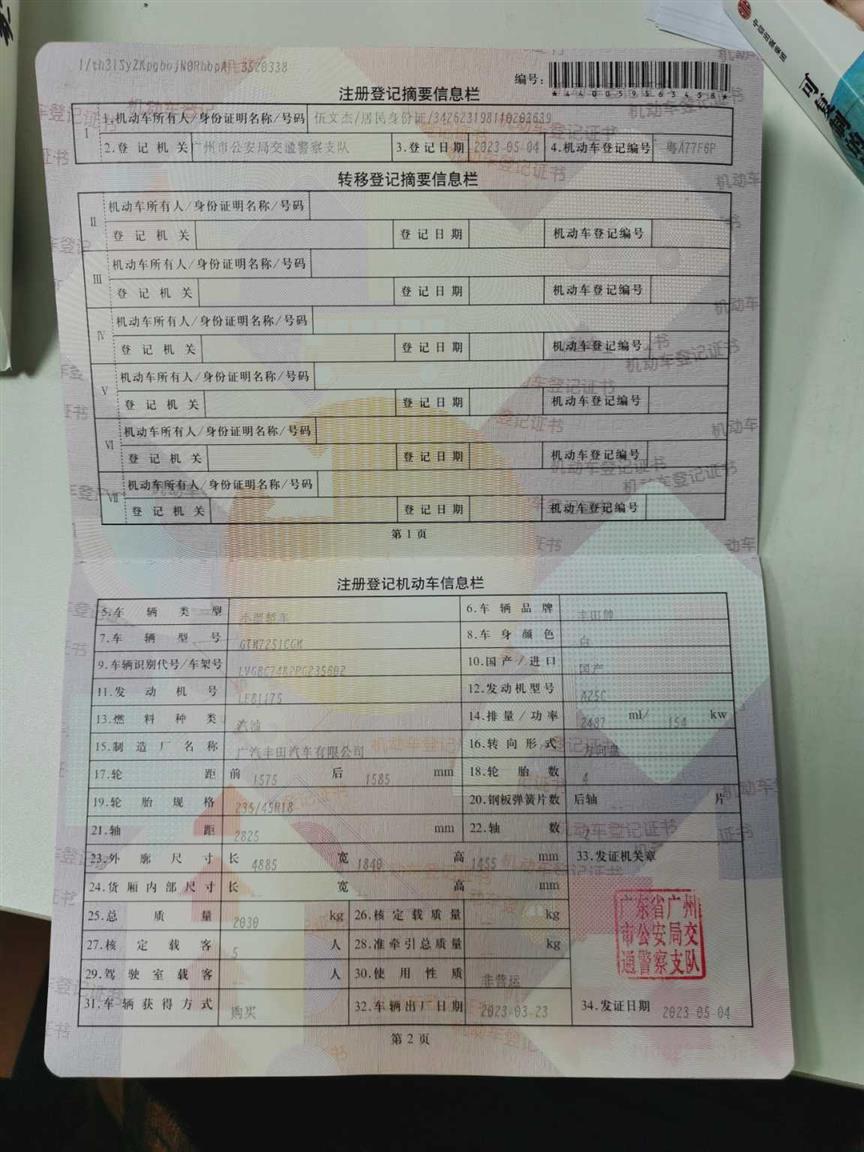 编号:
*440059563458*
注册登记摘要信息栏
I 1.机动车所有人/身份证明名称/号码 伍文杰/居民身份证/342623198110203639
2.登记机关 广州市公安局交通警察支队 3.登记日期 2023-05-04 4.机动车登记编号 粤A77F6P
转移登记摘要信息栏
II 机动车所有人/身份证明名称/号码
登记机关 登记日期 机动车登记编号
III 机动车所有人/身份证明名称/号码
登记机关 登记日期 机动车登记编号
IV 机动车所有人/身份证明名称/号码
登记机关 登记日期 机动车登记编号
V 机动车所有人/身份证明名称/号码
登记机关 登记日期 机动车登记编号
VI 机动车所有人/身份证明名称/号码
登记机关 登记日期 机动车登记编号
VII 机动车所有人/身份证明名称/号码
登记机关 登记日期 机动车登记编号
第1页
注册登记机动车信息栏
5.车辆类型 小型轿车 6.车辆品牌 丰田牌
7.车辆型号 GTM7251CGM 8.车身颜色 白
9.车辆识别代号/车架号 10.国产/进口 国产
11.发动机号 12.发动机型号 A25C
13.燃料种类 汽油 14.排量/功率 2487 ml/ 154 kw
15.制造厂名称 广汽丰田汽车有限公司 16.转向形式 方向盘
17.轮距 前 1575 后 1585 mm 18.轮胎数 4
19.轮胎规格 235/45R18 20.钢板弹簧片数 后轴 -- 片
21.轴距 2825 mm 22.轴数 2
23.外廓尺寸 长 4885 宽 1840 高 1455 mm 33.发证机关章
24.货厢内部尺寸 长 -- 宽 -- 高 -- mm
25.总质量 2030 kg 26.核定载质量 -- kg
27.核定载客 5 人 28.准牵引总质量 -- kg
29.驾驶室载客 -- 人 30.使用性质 非营运
31.车辆获得方式 购买 32.车辆出厂日期 2023-03-23 34.发证日期 2023-05-04
广东省广州
市公安局交
通警察支队
第2页
中信出版集团